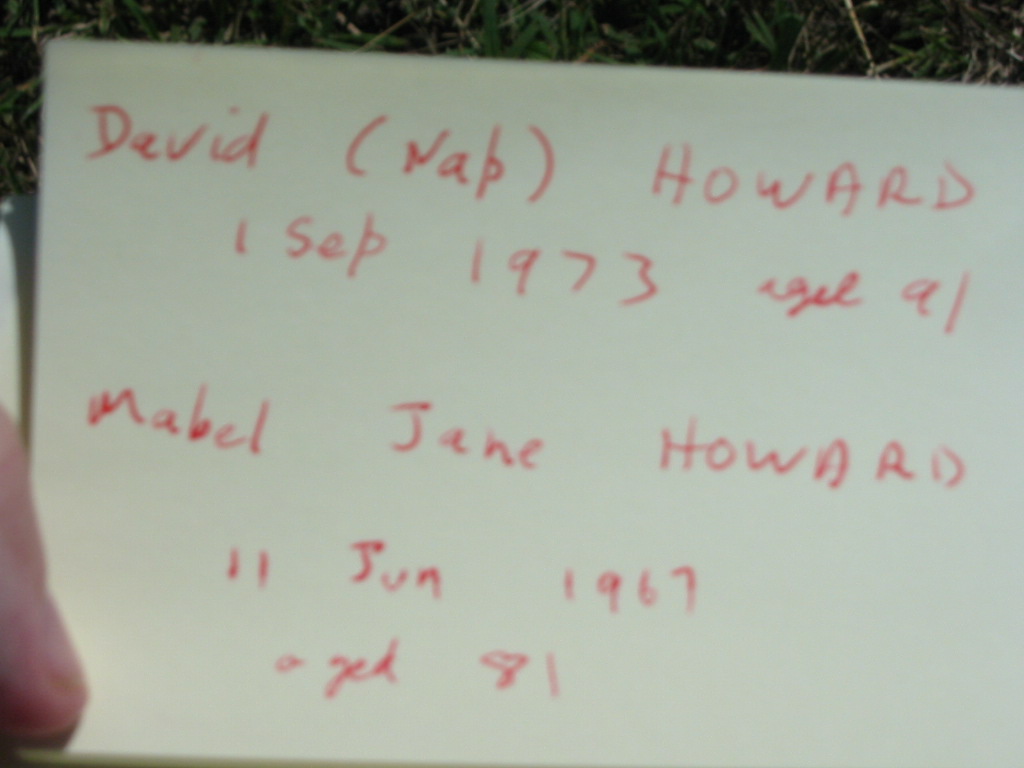 David (Nap) HOWARD
1 Sep 1973 aged 91
Mabel Jane HOWARD
11 Jun 1967
aged 81